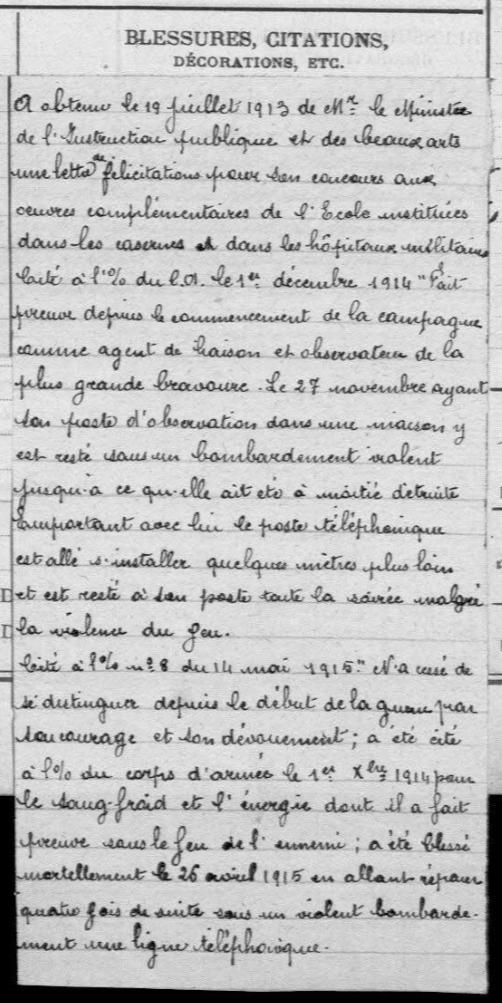 BLESSURES, CITATIONS,
DÉCORATIONS, ETC.
A obtenu le 19 juillet 1913 de Mr le Ministre
de l'Instruction publique et des beaux arts
une lettre de félicitations pour son concours aux
œuvres complémentaires de l'Ecole instituées
dans les casernes et dans les hôpitaux militaires
Cité à l'% du C.A. le 1er décembre 1914 "Fait
preuve depuis le commencement de la campagne
comme agent de liaison et observateur de la
plus grande bravoure. Le 27 novembre ayant
son poste d'observation dans une maison y
est resté sous un bombardement violent
jusqu'à ce qu'elle ait été à moitié détruite
Emportant avec lui le poste téléphonique
est allé s'installer quelques mètres plus loin
et est resté à son poste toute la soirée malgré
la violence du feu.
Cité à l'% n° 8 du 14 mai 1915 "N'a cessé de
se distinguer depuis le début de la guerre par
son courage et son dévouement; a été cité
à l'% du corps d'armée le 1er Xbre 1914 pour
le sang-froid et l'énergie dont il a fait
preuve sous le feu de l'ennemi; a été blessé
mortellement le 26 avril 1915 en allant réparer
quatre fois de suite sous un violent bombarde-
ment une ligne téléphonique.